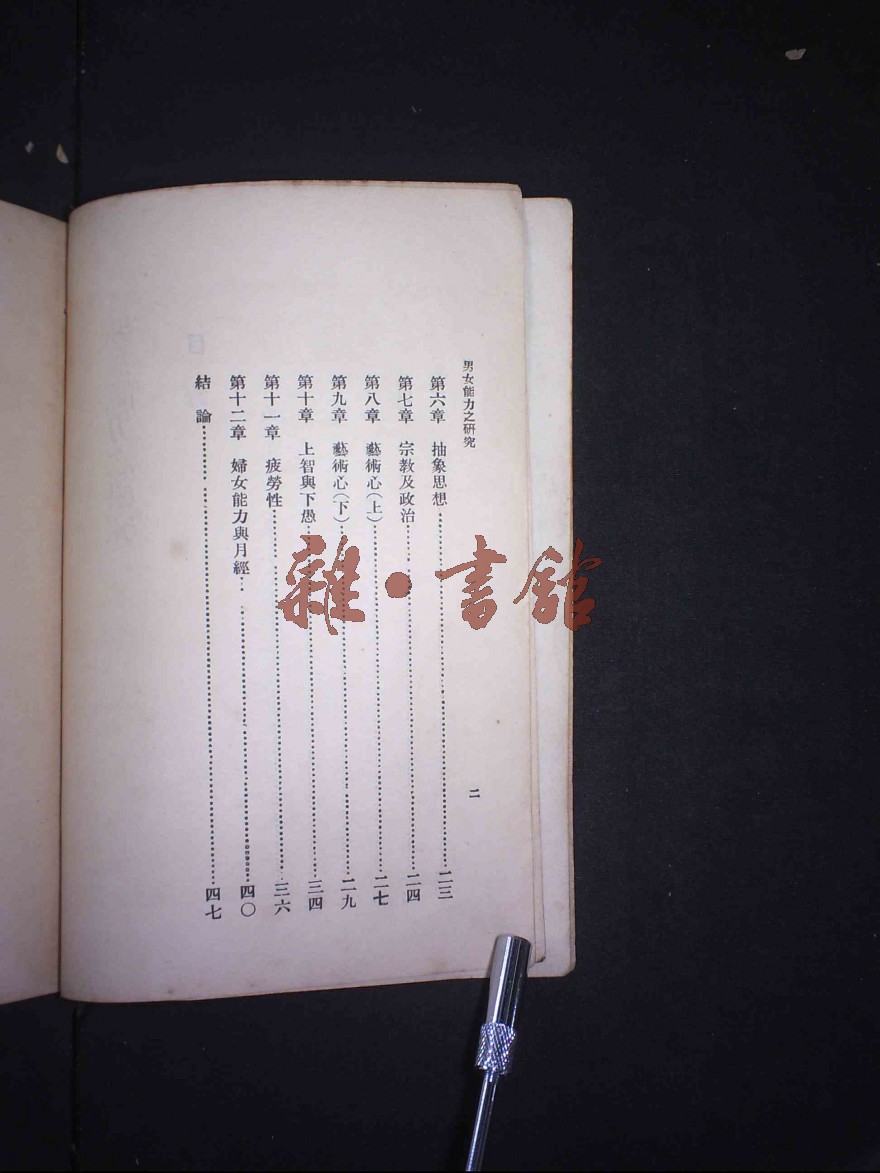 男女能力之研究
二
第六章 抽象思想……二三
第七章 宗教及政治……二四
第八章 藝術心(上)……二七
第九章 藝術心(下)……二九
第十章 上智與下愚……三四
第十一章 疲勞性……三六
第十二章 婦女能力與月經……四〇
結論……四七
雜·書館